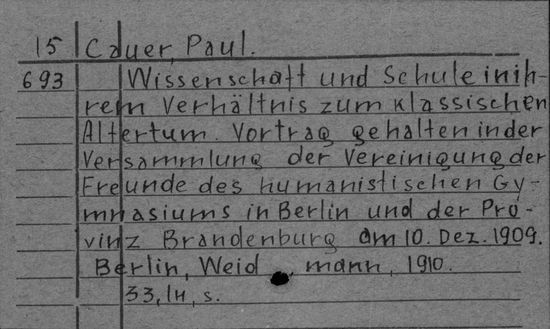 15 Cauer, Paul.
693 Wissenschaft und Schule in ih-
rem Verhältnis zum klassischen
Altertum. Vortrag gehalten in der
Versammlung der Vereinigung der
Freunde des humanistischen Gy-
mnasiums in Berlin und der Pro-
vinz Brandenburg am 10. Dez. 1909.
Berlin, Weidmann, 1910.
33, s.